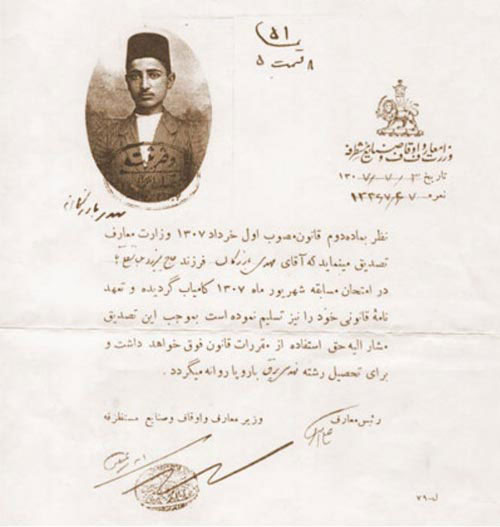 ۵۱
۸ قسمت ۵
وزارت معارف و اوقاف و صنایع مستظرفه
تاریخ ۱۳۰۷/۷/۳
نمره ۱۳۳۶۷/۶۷۰
مهدی بازرگان
نظر بماده دوم قانون مصوب اول خرداد ۱۳۰۷ وزارت معارف
تصدیق مینماید که آقای مهدی بازرگان فرزند حاج
در امتحان مسابقه شهریور ماه ۱۳۰۷ کامیاب گردیده و تعهد
نامۀ قانونی خود را نیز تسلیم نموده است بموجب این تصدیق
مشارالیه حق استفاده از مقررات قانون فوق خواهد داشت و
برای تحصیل رشته برق باروپا روانه میگردد .
رئیس معارف
وزیر معارف و اوقاف و صنایع مستظرفه
ل-۷۹۰